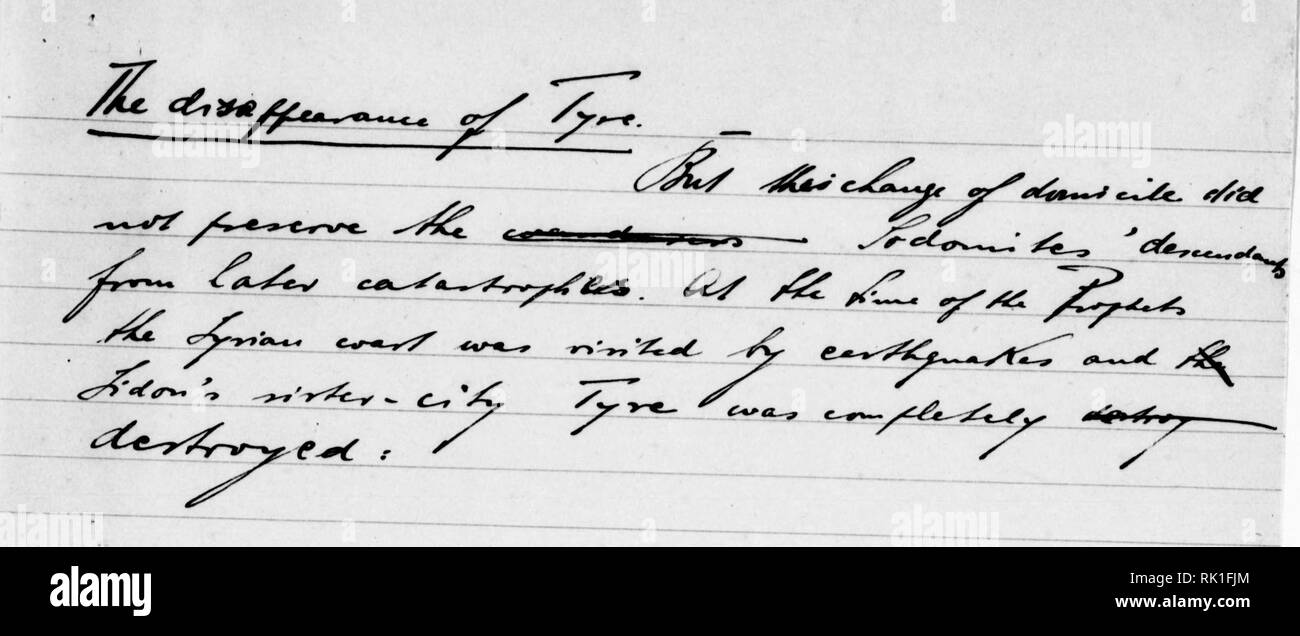 The disappearance of Tyre. —
But this change of domicile did
not preserve the wanderers Sodomites' descendants
from later catastrophies. At the time of the Prophets
the Syrian coast was visited by earthquakes and the
Sidon's sister-city Tyre was completely destroy
destroyed:
alamy
Image ID: RK1FJM
www.alamy.com